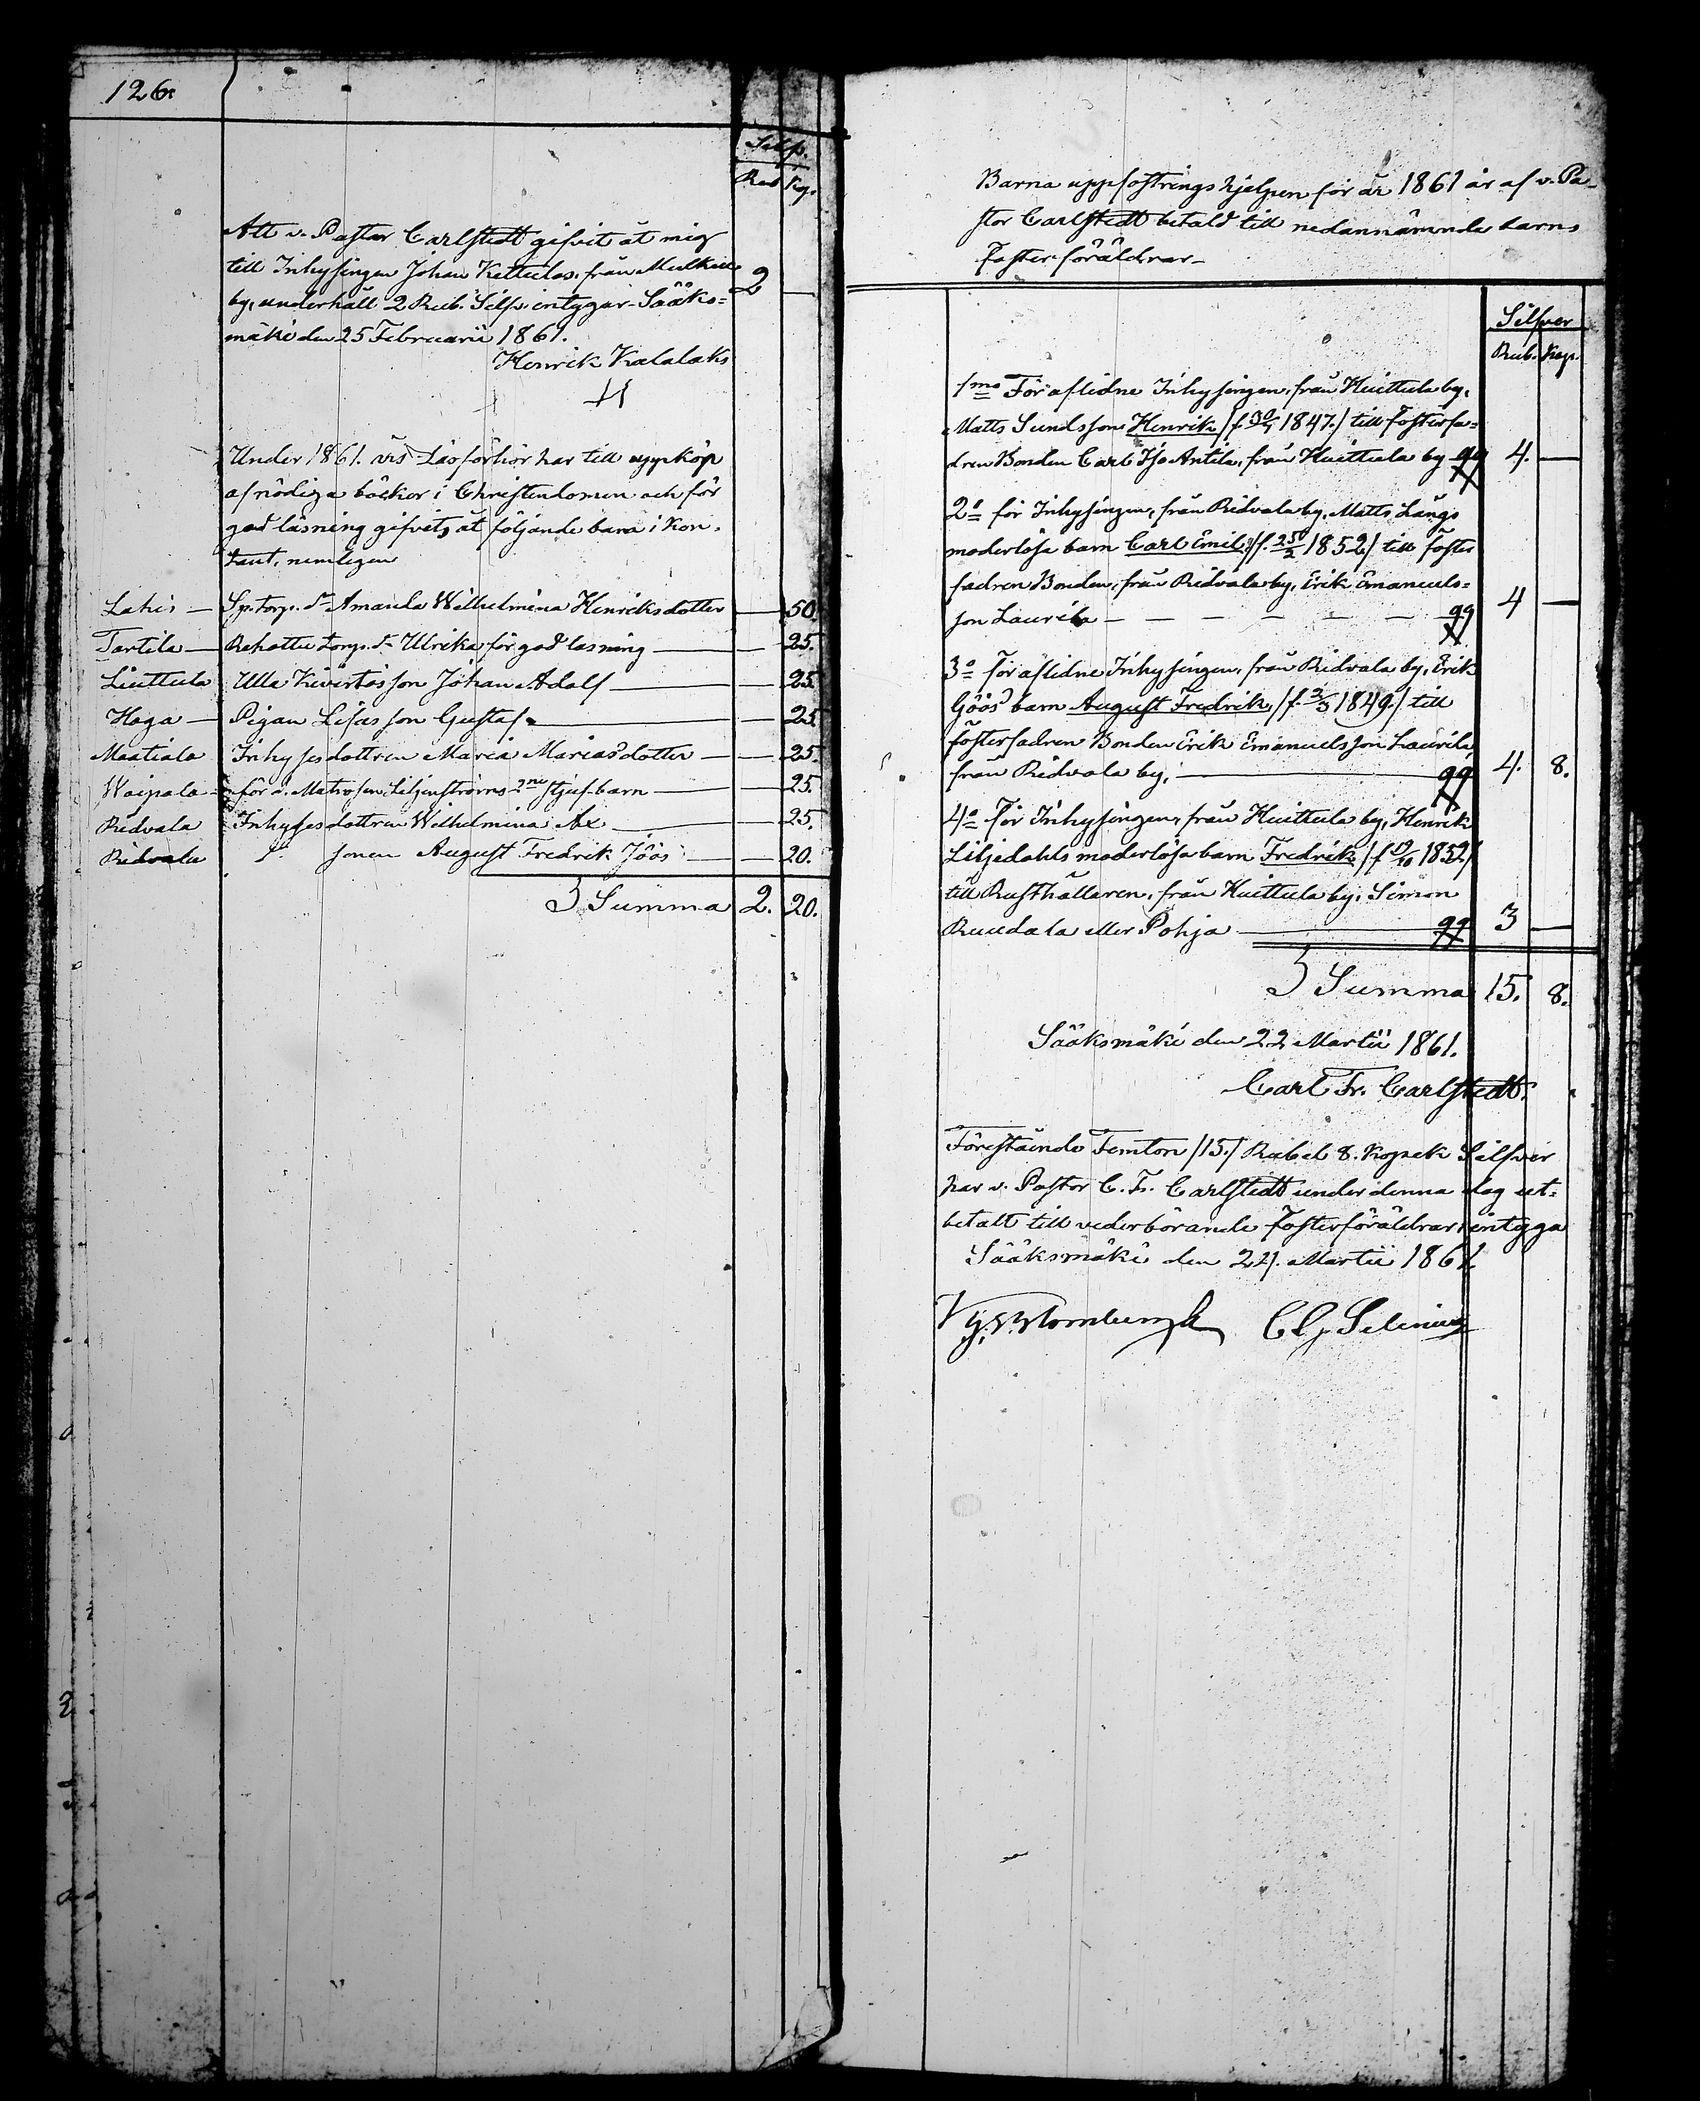 126.
Silfv.
Rub. Kop.
Att v. Pastor Carlstedt gifvit åt mig
till Inhysingen Johan Kettulas, från Mulkila
by, underhåll 2 Rub. Silfv. intygar. Sääks=
mäki den 25 Februarii 1861. 2 —
Henrik Kalalaks
Under 1861. års Läsförhör har till uppköp
af nödiga böcker i Christendomen och för
god läsning gifvits åt följande barn i kon-
tant, nemligen
Lahis — Sp. torp. dr Amanda Wilhelmina Henriksdotter — 50.
Tarttila — Rekottu torp. dr Ulrika för god läsning — 25.
Liuttula Ulla Kivistös son Johan Adolf — 25.
Haga — Pigan Lisas son Gustaf — 25.
Maatiala Inhysesdottren Maria Mariasdotter — 25.
Waipala — för d. Matrosen Liljenströms 2ne styfbarn — 25.
Ridvala Inhysesdottren Wilhelmina Ax — 25.
Ridvala d:o sonen August Fredrik Jöös — 20.
Summa 2. 20.
Barna uppfostringshjelpen för år 1861 är af v. Pa-
stor Carlstedt betald till nedannämnde barns
Fosterföräldrar.
Silfver
Rub. Kop.
1mo För aflidne Inhysingen, från Huittula by,
Matts Sunds son Henrik /f. 30/1 1847./ till fosterfa=
dren Bonden Carl Antila, från Huittula by 4. —
2o för Inhysingen, från Ridvala by, Matts Långs
moderlösa barn Carl Emil /f. 25/2 1852/ till foster
fadren Bonden, från Ridvala by, Erik Emanuels=
son Laurila — — — — — — 4 —
3o För aflidne Inhysingen, från Ridvala by, Erik
Göös barn August Fredrik /f. 2/3 1849./ till
fosterfadren Bonden Erik Emanuelsson Laurila
från Ridvala by, — 4. 8.
4o För Inhysingen, från Huittula by, Henrik
Liljedahls moderlösa barn Fredrik /f. 19/10 1852/
till Rusthållaren, från Huittula by, Simon
Ruudala eller Pohja — 3 —
Summa 15. 8.
Sääksmäki den 22 Martii 1861.
Carl Fr. Carlstedt.
Förestående Femton /15./ Rubel 8. Kopek Silfver
har v. Pastor C. Fr. Carlstedt under denna dag ut=
betalt till vederbörande Fosterföräldrar, intyga
Sääksmäki den 24. Martii 1861.